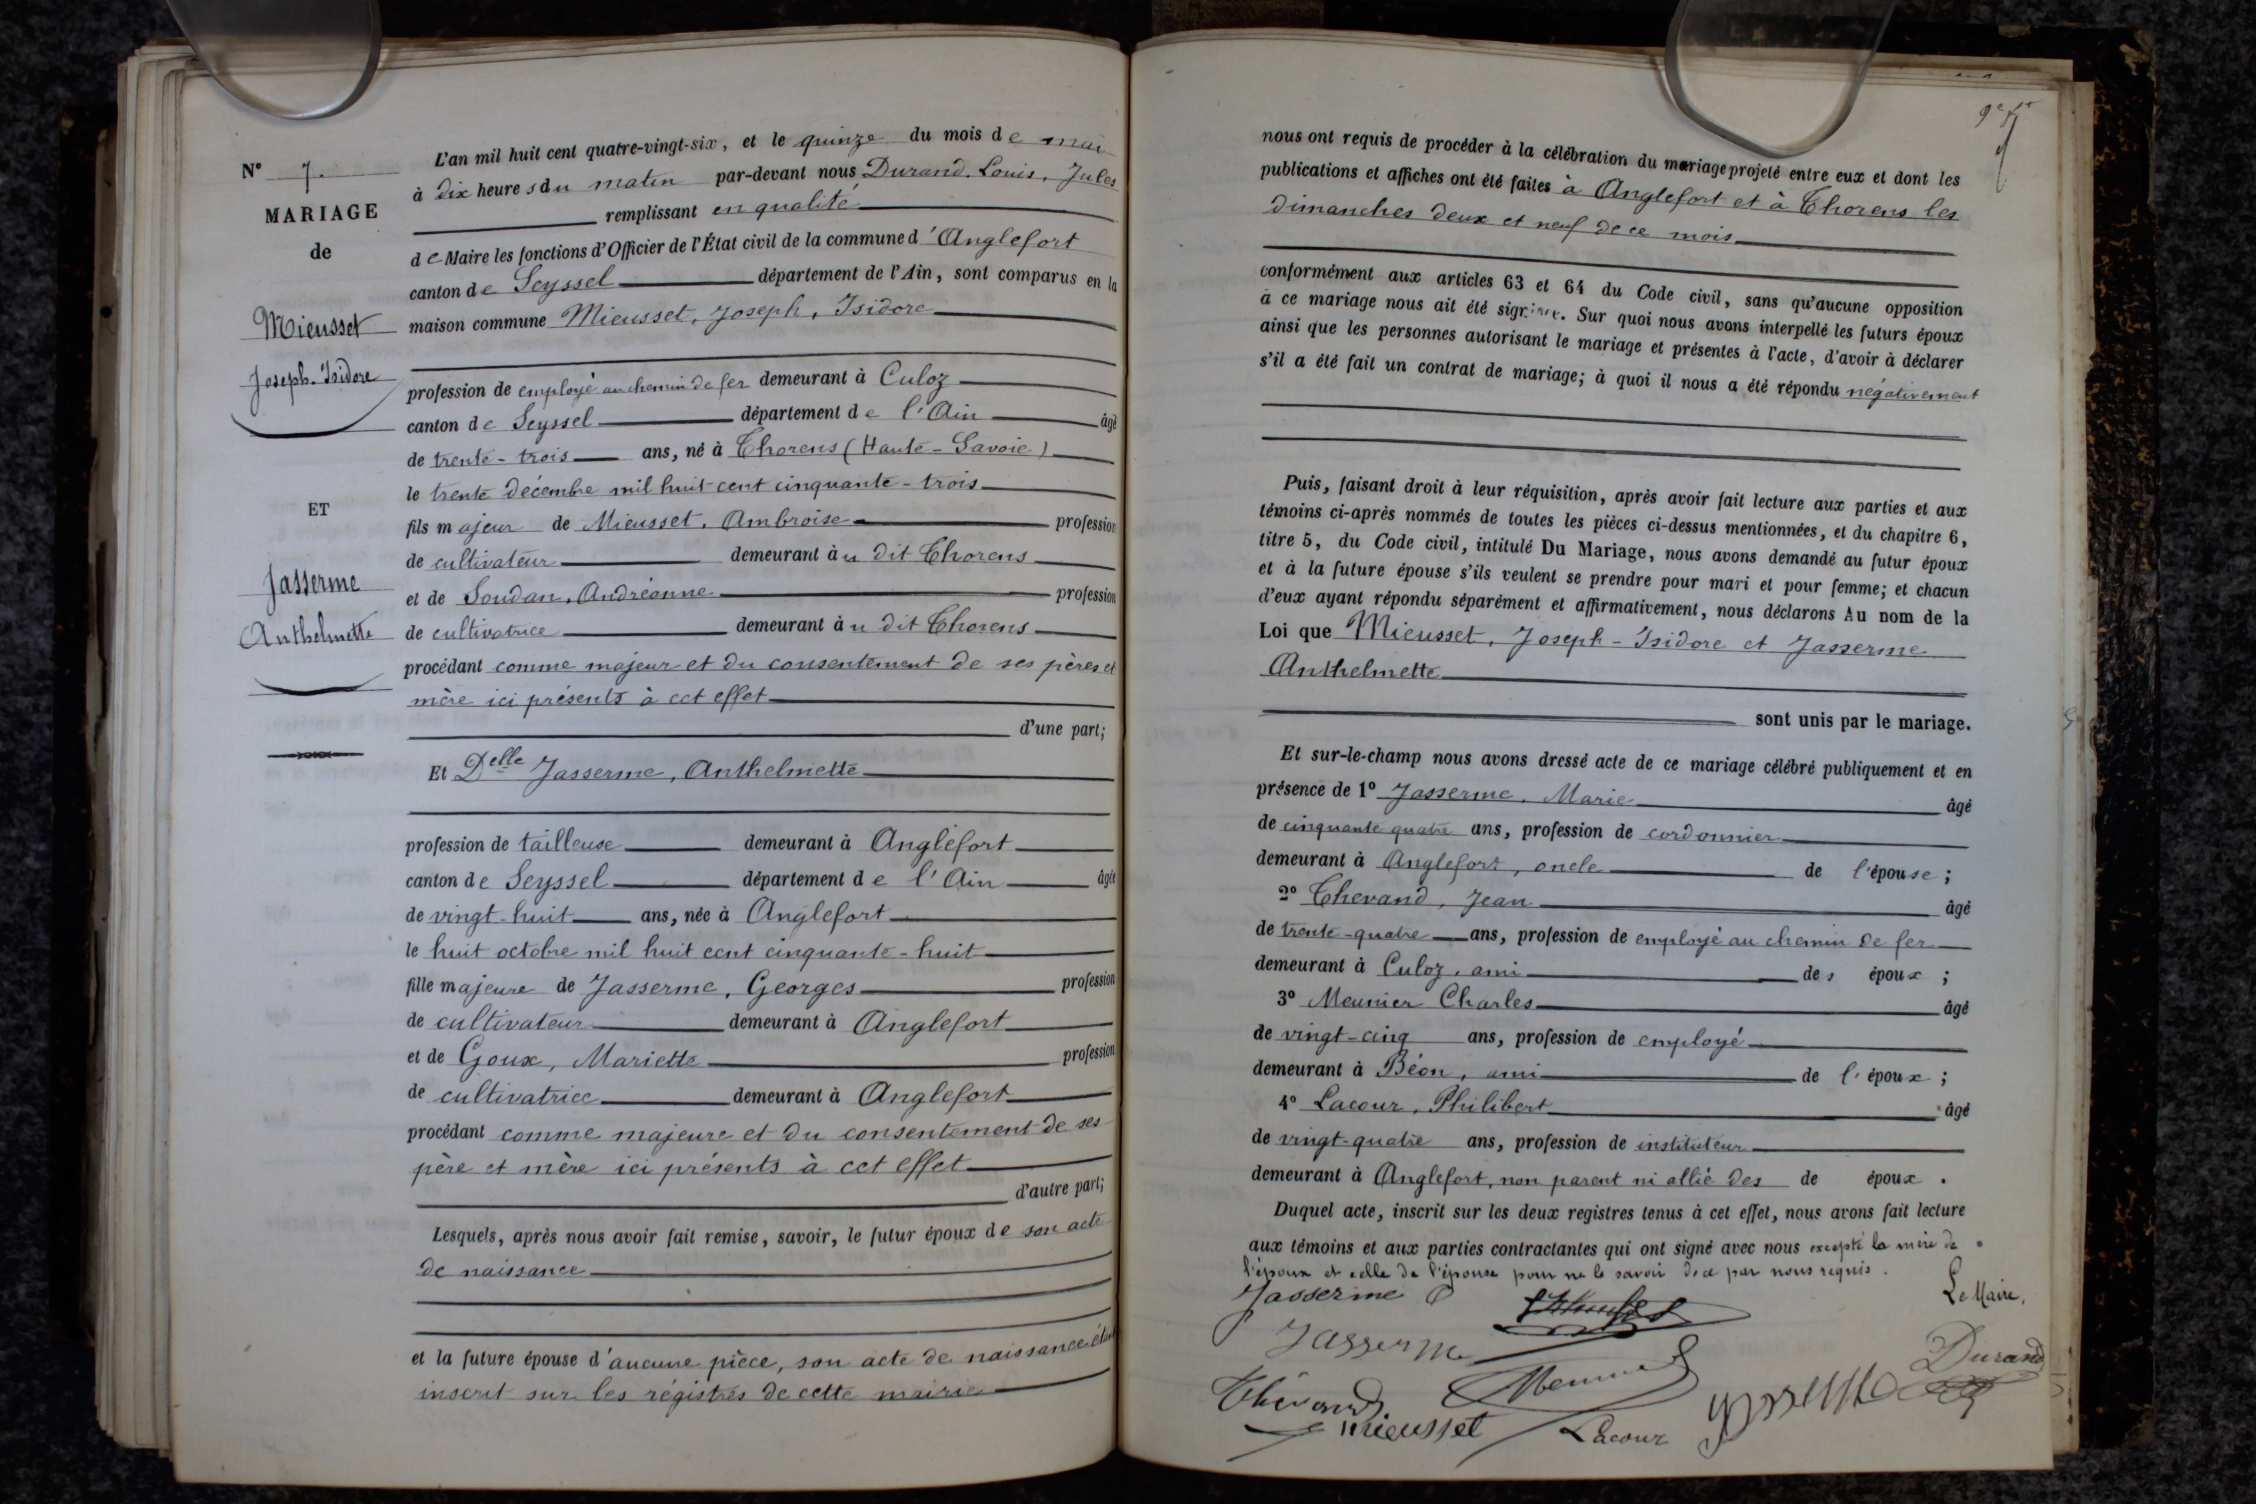 N° 7.
MARIAGE
de
Mieusset
Joseph-Isidore
ET
Jasserme
Anthelmette
L'an mil huit cent quatre-vingt-six, et le quinze du mois de mai
à dix heures du matin par-devant nous Durand, Louis, Jules
remplissant en qualité
de Maire les fonctions d'Officier de l'État civil de la commune d'Anglefort
canton de Seyssel département de l'Ain, sont comparus en la
maison commune Mieusset, Joseph, Isidore
profession de employé au chemin de fer demeurant à Culoz
canton de Seyssel département de l'Ain âgé
de trente-trois ans, né à Thorens (Haute-Savoie)
le trente décembre mil huit cent cinquante-trois
fils majeur de Mieusset, Ambroise profession
de cultivateur demeurant au dit Thorens
et de Soudan, Andréanne profession
de cultivatrice demeurant au dit Thorens
procédant comme majeur et du consentement de ses pères et
mère ici présents à cet effet
d'une part;
Et Delle Jasserme, Anthelmette
profession de tailleuse demeurant à Anglefort
canton de Seyssel département de l'Ain âgée
de vingt-huit ans, née à Anglefort
le huit octobre mil huit cent cinquante-huit
fille majeure de Jasserme, Georges profession
de cultivateur demeurant à Anglefort
et de Goux, Mariette profession
de cultivatrice demeurant à Anglefort
procédant comme majeure et du consentement de ses
père et mère ici présents à cet effet
d'autre part;
Lesquels, après nous avoir fait remise, savoir, le futur époux de son acte
de naissance
et la future épouse d'aucune pièce, son acte de naissance étant
inscrit sur les régistrés de cette mairie
nous ont requis de procéder à la célébration du mariage projeté entre eux et dont les
publications et affiches ont été faites à Anglefort et à Thorens les
dimanches deux et neuf de ce mois
conformément aux articles 63 et 64 du Code civil, sans qu'aucune opposition
à ce mariage nous ait été signifiée. Sur quoi nous avons interpellé les futurs époux
ainsi que les personnes autorisant le mariage et présentes à l'acte, d'avoir à déclarer
s'il a été fait un contrat de mariage; à quoi il nous a été répondu négativement
Puis, faisant droit à leur réquisition, après avoir fait lecture aux parties et aux
témoins ci-après nommés de toutes les pièces ci-dessus mentionnées, et du chapitre 6,
titre 5, du Code civil, intitulé Du Mariage, nous avons demandé au futur époux
et à la future épouse s'ils veulent se prendre pour mari et pour femme; et chacun
d'eux ayant répondu séparément et affirmativement, nous déclarons Au nom de la
Loi que Mieusset, Joseph-Isidore et Jasserme
Anthelmette
sont unis par le mariage.
Et sur-le-champ nous avons dressé acte de ce mariage célébré publiquement et en
présence de 1° Jasserme, Marie âgé
de cinquante quatre ans, profession de cordonnier
demeurant à Anglefort, oncle de l'épouse;
2° Thevand, Jean âgé
de trente-quatre ans, profession de employé au chemin de fer
demeurant à Culoz, ami des époux;
3° Meunier Charles âgé
de vingt-cinq ans, profession de employé
demeurant à Béon, ami de l'époux;
4° Lacour, Philibert âgé
de vingt-quatre ans, profession de instituteur
demeurant à Anglefort, non parent ni allié des de époux.
Duquel acte, inscrit sur les deux registres tenus à cet effet, nous avons fait lecture
aux témoins et aux parties contractantes qui ont signé avec nous excepté la mère de
l'époux et celle de l'épouse pour ne le savoir de ce par nous requis.
Jasserme
Le Maire,
Jasserme
Durand
Thévand
Meunier
Mieusset
Lacour